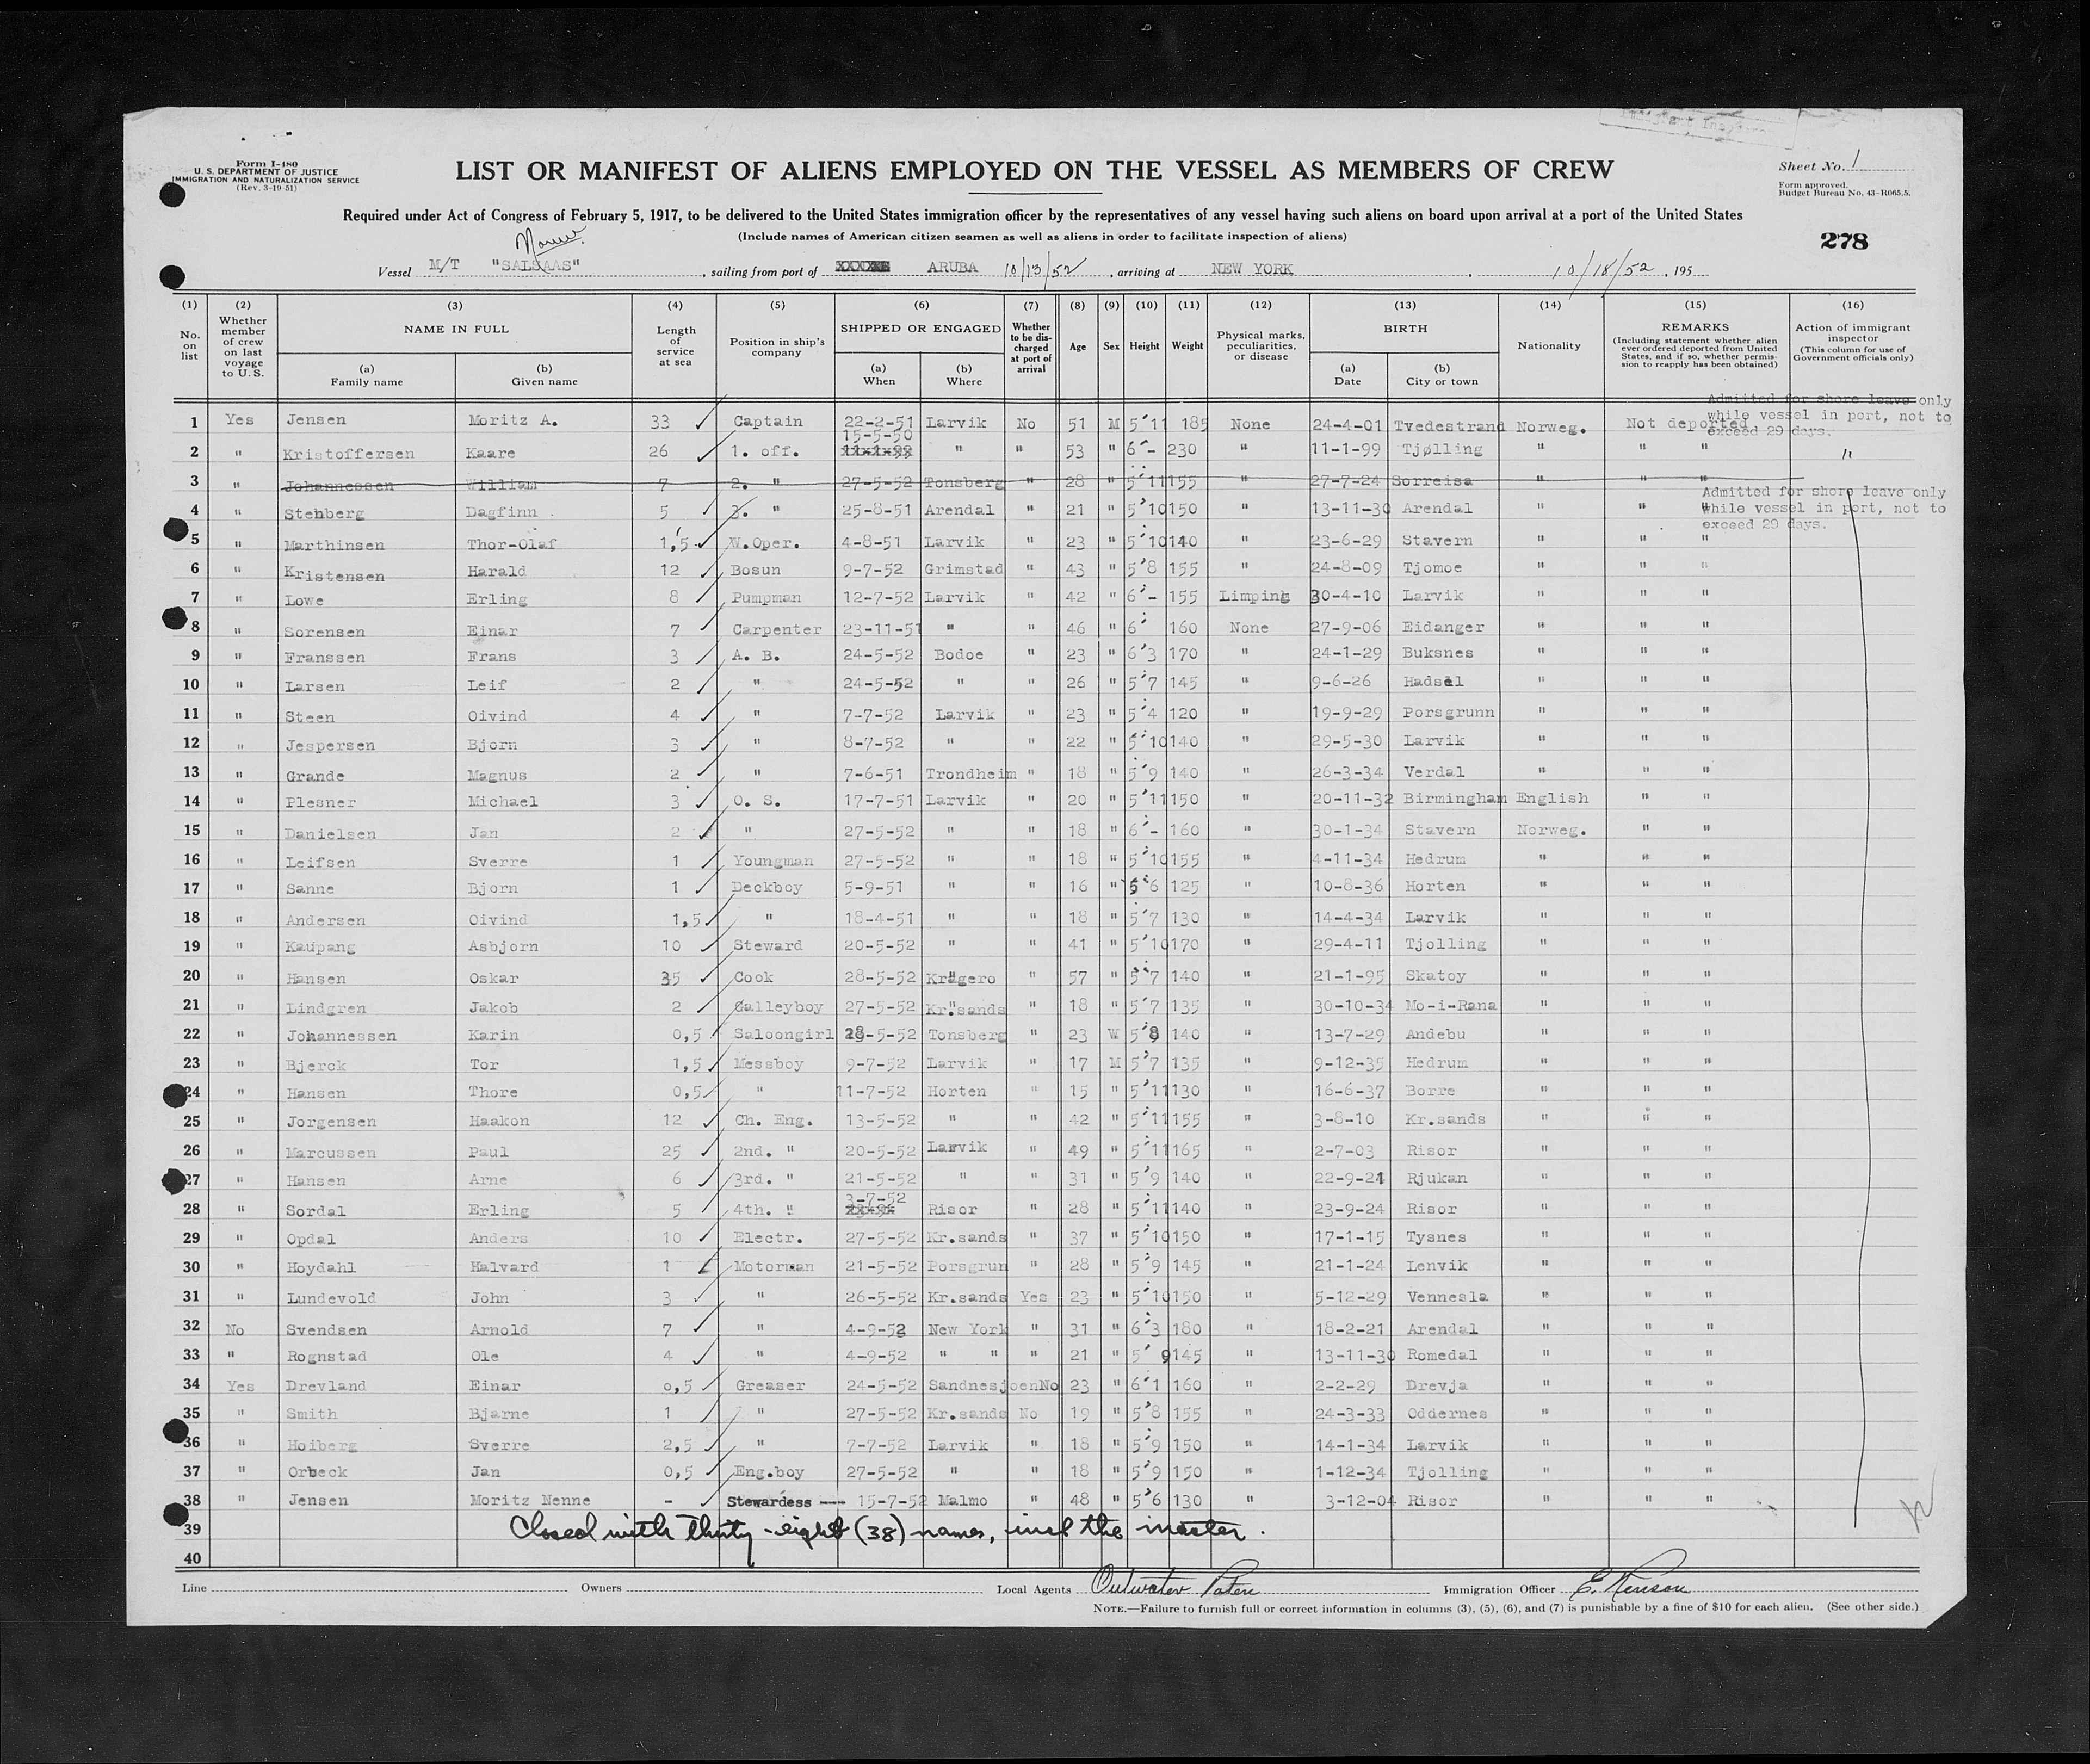 Form I-480
U. S. DEPARTMENT OF JUSTICE
IMMIGRATION AND NATURALIZATION SERVICE
(Rev. 3-19-51)
LIST OR MANIFEST OF ALIENS EMPLOYED ON THE VESSEL AS MEMBERS OF CREW
Sheet No. 1
Form approved.
Budget Bureau No. 43-R065.5.
Required under Act of Congress of February 5, 1917, to be delivered to the United States immigration officer by the representatives of any vessel having such aliens on board upon arrival at a port of the United States
(Include names of American citizen seamen as well as aliens in order to facilitate inspection of aliens)
278
Vessel M/T "SALSAAS", sailing from port of ARUBA 10/13/52, arriving at NEW YORK, 10/18/52, 195
(1) (2) (3) (4) (5) (6) (7) (8) (9) (10) (11) (12) (13) (14) (15) (16)
No. on list
Whether member of crew on last voyage to U. S.
NAME IN FULL
(a) Family name
(b) Given name
Length of service at sea
Position in ship's company
SHIPPED OR ENGAGED
(a) When
(b) Where
Whether to be discharged at port of arrival
Age
Sex
Height
Weight
Physical marks, peculiarities, or disease
BIRTH
(a) Date
(b) City or town
Nationality
REMARKS
(Including statement whether alien ever ordered deported from United States, and if so, whether permission to reapply has been obtained)
Action of immigrant inspector
(This column for use of Government officials only)
Admitted for shore leave only
while vessel in port, not to
exceed 29 days.
1 Yes Jensen Moritz A. 33 Captain 22-2-51 Larvik No 51 M 5'11 185 None 24-4-01 Tvedestrand Norweg. Not deported
2 " Kristoffersen Kaare 26 1. off. 15-5-50 " " 53 " 6'- 230 " 11-1-99 Tjølling " " " "
3 " Johannessen William 7 2. " 27-5-52 Tonsberg " 28 " 5'11 155 " 27-7-24 Sorreisa " " "
Admitted for shore leave only
while vessel in port, not to
exceed 29 days.
4 " Stehberg Dagfinn 5 3. " 25-8-51 Arendal " 21 " 5'10 150 " 13-11-30 Arendal " " "
5 " Marthinsen Thor-Olaf 1,5 W.Oper. 4-8-51 Larvik " 23 " 5'10 140 " 23-6-29 Stavern " " "
6 " Kristensen Harald 12 Bosun 9-7-52 Grimstad " 43 " 5'8 155 " 24-8-09 Tjomoe " " "
7 " Lowe Erling 8 Pumpman 12-7-52 Larvik " 42 " 6'- 155 Limping 30-4-10 Larvik " " "
8 " Sorensen Einar 7 Carpenter 23-11-51 " " 46 " 6' 160 None 27-9-06 Eidanger " " "
9 " Franssen Frans 3 A. B. 24-5-52 Bodoe " 23 " 6'3 170 " 24-1-29 Buksnes " " "
10 " Larsen Leif 2 " 24-5-52 " " 26 " 5'7 145 " 9-6-26 Hadsel " " "
11 " Steen Oivind 4 " 7-7-52 Larvik " 23 " 5'4 120 " 19-9-29 Porsgrunn " " "
12 " Jespersen Bjorn 3 " 8-7-52 " " 22 " 5'10 140 " 29-5-30 Larvik " " "
13 " Grande Magnus 2 " 7-6-51 Trondheim " 18 " 5'9 140 " 26-3-34 Verdal " " "
14 " Plesner Michael 3 O. S. 17-7-51 Larvik " 20 " 5'11 150 " 20-11-32 Birmingham English " "
15 " Danielsen Jan 2 " 27-5-52 " " 18 " 6'- 160 " 30-1-34 Stavern Norweg. " "
16 " Leifsen Sverre 1 Youngman 27-5-52 " " 18 " 5'10 155 " 4-11-34 Hedrum " " "
17 " Sanne Bjorn 1 Deckboy 5-9-51 " " 16 " 5'6 125 " 10-8-36 Horten " " "
18 " Andersen Oivind 1,5 " 18-4-51 " " 18 " 5'7 130 " 14-4-34 Larvik " " "
19 " Kaupang Asbjorn 10 Steward 20-5-52 " " 41 " 5'10 170 " 29-4-11 Tjolling " " "
20 " Hansen Oskar 35 Cook 28-5-52 Kragero " 57 " 5'7 140 " 21-1-95 Skatoy " " "
21 " Lindgren Jakob 2 Galleyboy 27-5-52 Kr.sands " 18 " 5'7 135 " 30-10-34 Mo-i-Rana " " "
22 " Johannessen Karin 0,5 Saloongirl 28-5-52 Tonsberg " 23 W 5'8 140 " 13-7-29 Andebu " " "
23 " Bjerck Tor 1,5 Messboy 9-7-52 Larvik " 17 M 5'7 135 " 9-12-35 Hedrum " " "
24 " Hansen Thore 0,5 " 11-7-52 Horten " 15 " 5'11 130 " 16-6-37 Borre " " "
25 " Jorgensen Haakon 12 Ch. Eng. 13-5-52 " " 42 " 5'11 155 " 3-8-10 Kr.sands " " "
26 " Marcussen Paul 25 2nd. " 20-5-52 Larvik " 49 " 5'11 165 " 2-7-03 Risor " " "
27 " Hansen Arne 6 3rd. " 21-5-52 " " 31 " 5'9 140 " 22-9-21 Rjukan " " "
28 " Sordal Erling 5 4th. " 3-7-52 Risor " 28 " 5'11 140 " 23-9-24 Risor " " "
29 " Opdal Anders 10 Electr. 27-5-52 Kr.sands " 37 " 5'10 150 " 17-1-15 Tysnes " " "
30 " Hoydahl Halvard 1 Motorman 21-5-52 Porsgrun " 28 " 5'9 145 " 21-1-24 Lenvik " " "
31 " Lundevold John 3 " 26-5-52 Kr.sands Yes 23 " 5'10 150 " 5-12-29 Vennesla " " "
32 No Svendsen Arnold 7 " 4-9-52 New York " 31 " 6'3 180 " 18-2-21 Arendal " " "
33 " Rognstad Ole 4 " 4-9-52 " " " 21 " 5'9 145 " 13-11-30 Romedal " " "
34 Yes Drevland Einar 0,5 Greaser 24-5-52 Sandnesjoen No 23 " 6'1 160 " 2-2-29 Drevja " " "
35 " Smith Bjarne 1 " 27-5-52 Kr.sands No 19 " 5'8 155 " 24-3-33 Oddernes " " "
36 " Hoiberg Sverre 2,5 " 7-7-52 Larvik " 18 " 5'9 150 " 14-1-34 Larvik " " "
37 " Orbeck Jan 0,5 Eng.boy 27-5-52 " " 18 " 5'9 150 " 1-12-34 Tjolling " " "
38 " Jensen Moritz Nenne - Stewardess --- 15-7-52 Malmo " 48 " 5'6 130 " 3-12-04 Risor " " "
39 Closed with thirty-eight (38) names, incl the master.
40
Line Owners Local Agents Immigration Officer
NOTE.—Failure to furnish full or correct information in columns (3), (5), (6), and (7) is punishable by a fine of $10 for each alien. (See other side.)